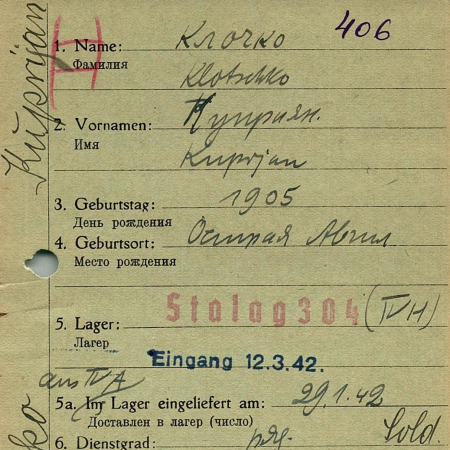 406
1. Name: Клочко
Фамилия
Klotschko
2. Vornamen: Куприян.
Имя
Kuprjan
3. Geburtstag: 1905
День рождения
4. Geburtsort: Острая
Место рождения
Stalag 304 (IV H)
5. Lager:
Лагерь
Eingang 12.3.42.
aus IV A
5a. Im Lager eingeliefert am: 29.1.42
Доставлен в лагерь (число)
6. Dienstgrad: ряд. Sold.
Kuprjan